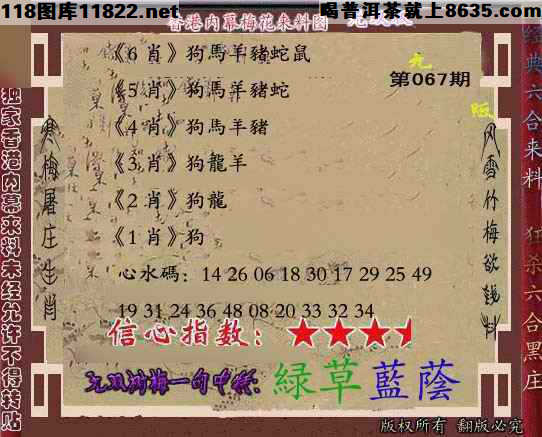 118图库11822.net
喝普洱茶就上8635.com
香港内幕梅花来料图
第067期
《6 肖》狗馬羊豬蛇鼠
《5 肖》狗馬羊豬蛇
《4 肖》狗馬羊豬
《3 肖》狗龍羊
《2 肖》狗龍
《1 肖》狗
心水碼：14 26 06 18 30 17 29 25 49
19 31 24 36 48 08 20 33 32 34
信心指数：
綠草藍蔭
独家香港内幕来料未经允许不得转贴
寒梅屠庄生肖
风雪竹梅欲钱料
经典六合来料
狂杀六合黑庄
版权所有 翻版必究